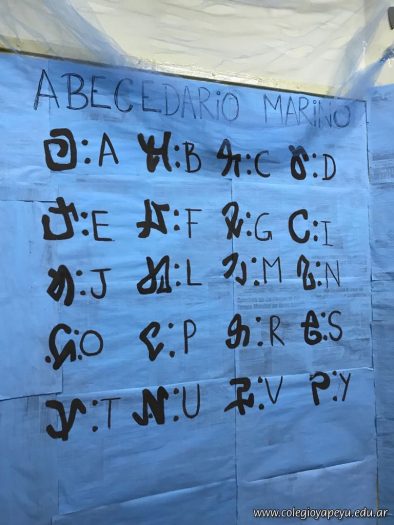 ABECEDARIO MARINO
:A :B :C :D
:E :F :G :I
:J :L :M :N
:O :P :R :S
:T :U :V :Y
www.colegioyapeyu.edu.ar